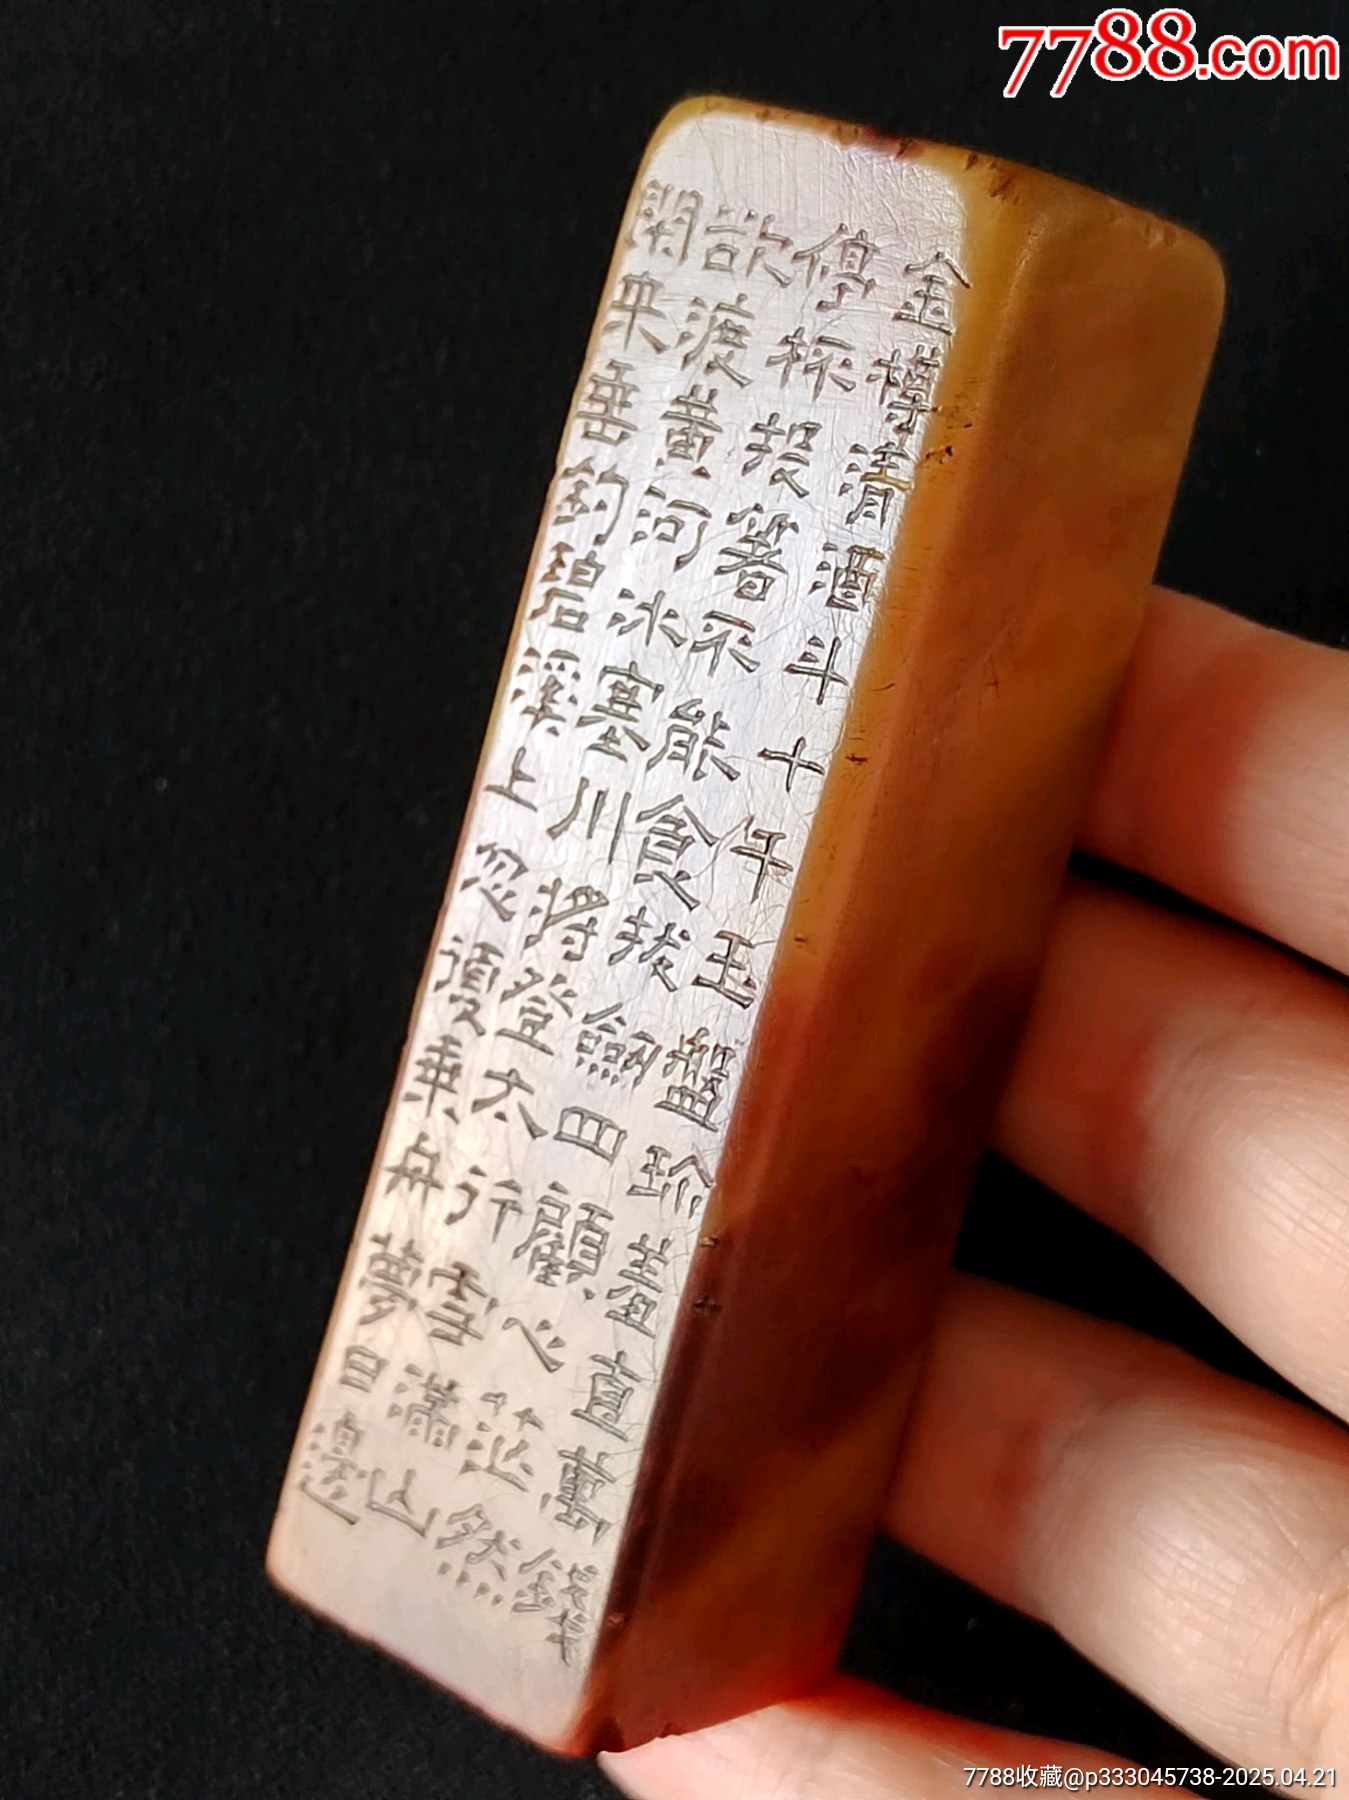 7788.com
金樽清酒斗十千玉盤珍羞直萬錢
停杯投箸不能食拔劍四顧心茫然
欲渡黃河冰塞川將登太行雪滿山
閑來垂釣碧溪上忽復乘舟夢日邊
7788收藏@p333045738-2025.04.21